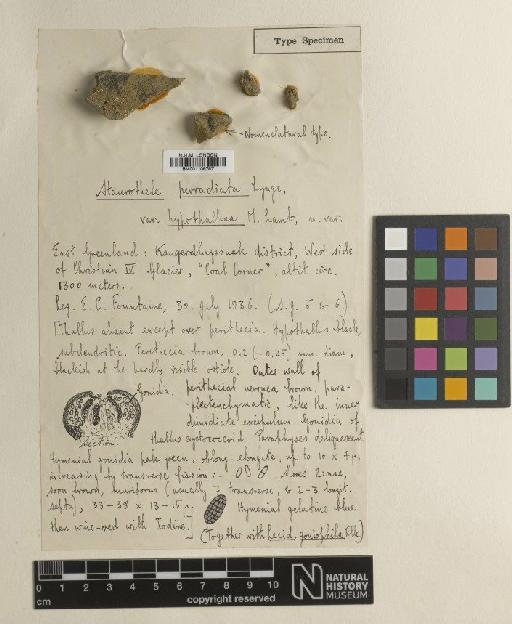 Type Specimen
Nomenclatural type.
N.H.M. LONDON
Staurothele perradiata Lynge.
var. hypothallina M. Lamb, n. var.
East Greenland: Kangerdlugssuak district, West side
of Christian IV Glacier, "Coal Corner", altit circ.
1300 meters.
Leg. E. C. Fountaine, 30 July 1936.
Thallus absent except over perithecia. Hypothallus black,
subdendritic. Perithecia brown, 0.2 (-0.25) mm. diam,
blackish at the hardly visible ostiole. Outer wall of
Gonidia. perithecial verruca brown, para-
plectenchymatic, like the inner
dimidiate excipulum. Gonidia of
section
thallus cystococcoid. Paraphyses deliquescent.
Hymenial gonidia pale green, oblong-elongate, up to 10 x 4 µ,
increasing by transverse fission:- Spores 2:nae,
soon brown, muriform (usually transverse, & 2-3 longit.
septa), 33-38 x 13-15 µ. Hymenial gelatine blue
then wine-red with Iodine.
(Together with Lecid. goniophila Flk.)
cm 1 2 3 4 5 6 7 8 9 10
copyright reserved
NATURAL
HISTORY
MUSEUM